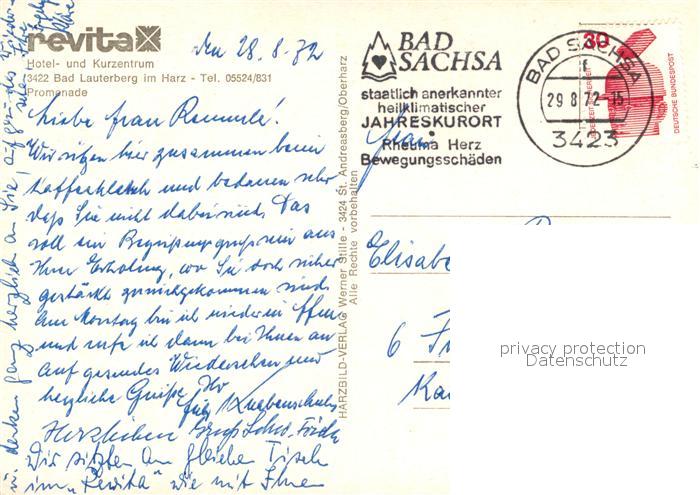 revita
Hotel- und Kurzentrum
3422 Bad Lauterberg im Harz - Tel. 05524/831
Promenade
den 28.8.72
Liebe Frau
Wir sitzen hier zusammen beim
Kaffeeklatsch und bedauern sehr
daß Sie nicht dabei sind. Das
soll ein Begrüßungsgruß sein aus
Ihrer Erholung, wo Sie doch sicher
gestärkt zurückgekommen sind.
Am Montag bin ich wieder in
und rufe ich dann bei Ihnen an
Auf gesundes Wiedersehen und
herzliche Grüße Ihr
Herzlichen Gruß
Wir sitzen am gleichen Tisch
im "Revita" wie mit Ihnen
u. denken ganz herzlich an Sie,
HARZBILD-VERLAG Werner Stille - 3424 St. Andreasberg/Oberharz
Alle Rechte vorbehalten
BAD
SACHSA
staatlich anerkannter
heilklimatischer
JAHRESKURORT
Rheuma Herz
Bewegungsschäden
BAD SACHSA
f
29.8.72-15
3423
30
DEUTSCHE BUNDESPOST
Frau
Elisabe
6 F
Ka
privacy protection
Datenschutz